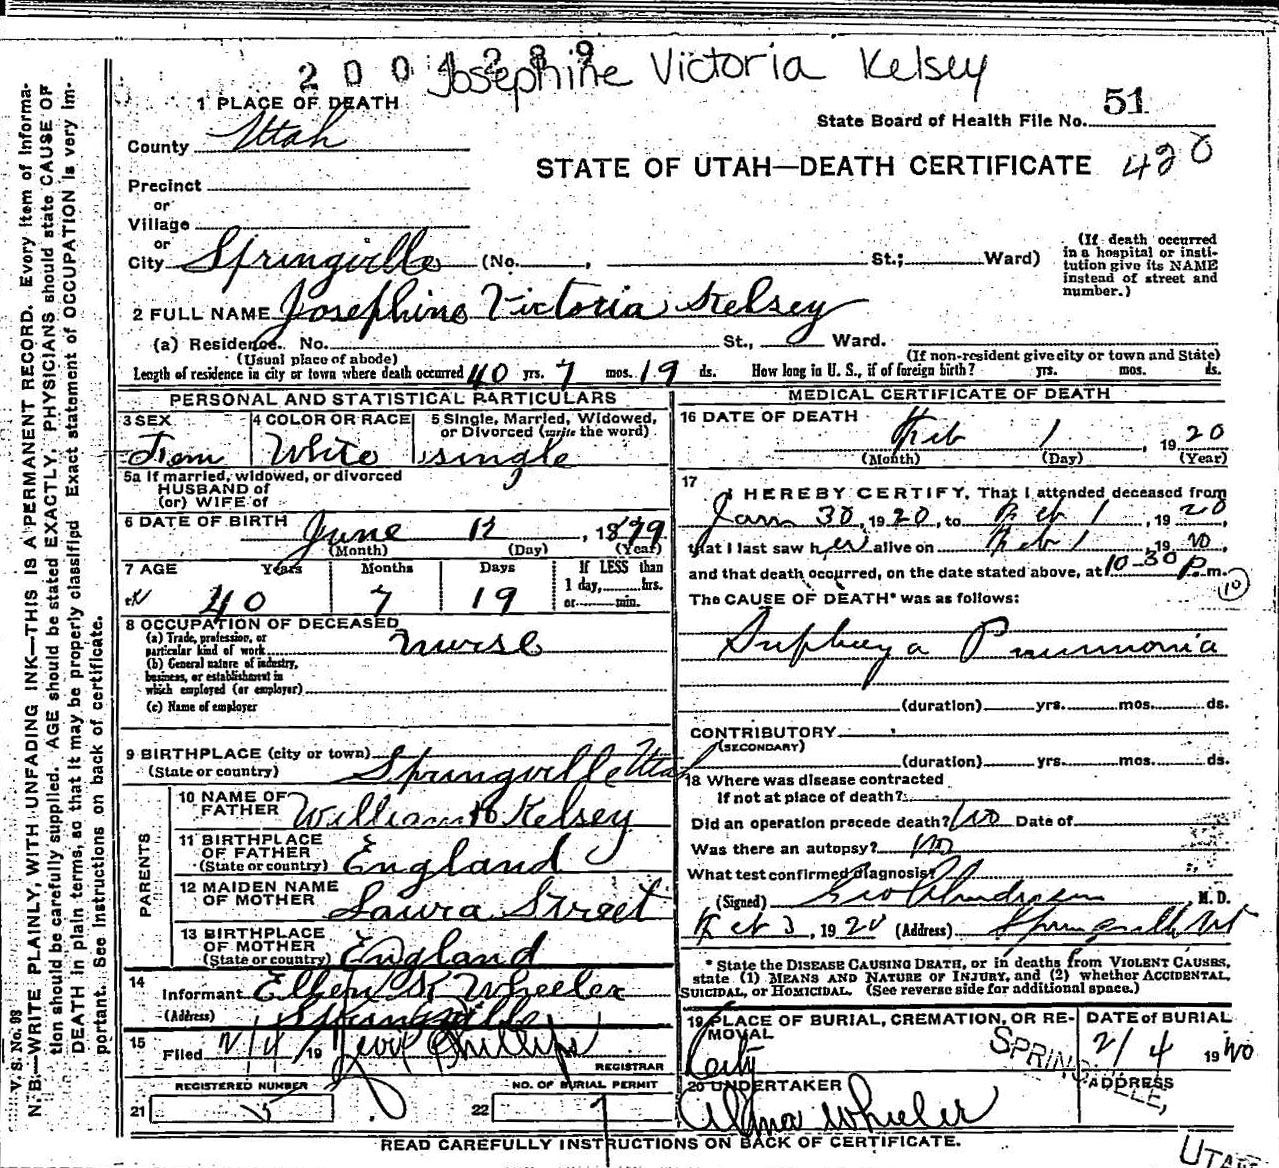 2004289
Josephine Victoria Kelsey
1 PLACE OF DEATH
County Utah
State Board of Health File No. 51
STATE OF UTAH—DEATH CERTIFICATE 420
Precinct
or
Village
or
City Springville (No. , St.; Ward)
(If death occurred in a hospital or insti-
tution give its NAME
instead of street and
number.)
2 FULL NAME Josephine Victoria Kelsey
(a) Residence. No. St., Ward.
(Usual place of abode) (If non-resident give city or town and State)
Length of residence in city or town where death occurred 40 yrs. 7 mos. 19 ds. How long in U. S., if of foreign birth? yrs. mos. ds.
PERSONAL AND STATISTICAL PARTICULARS
3 SEX Fem
4 COLOR OR RACE White
5 Single, Married, Widowed,
or Divorced (write the word)
single
5a If married, widowed, or divorced
HUSBAND of
(or) WIFE of
6 DATE OF BIRTH June 12, 1879
(Month) (Day) (Year)
7 AGE Years Months Days If LESS than
1 day, hrs.
or min.
40 7 19
8 OCCUPATION OF DECEASED
(a) Trade, profession, or
particular kind of work nurse
(b) General nature of industry,
business, or establishment in
which employed (or employer)
(c) Name of employer
9 BIRTHPLACE (city or town) Springville Utah
(State or country)
PARENTS
10 NAME OF
FATHER William H Kelsey
11 BIRTHPLACE
OF FATHER England
(State or country)
12 MAIDEN NAME
OF MOTHER Laura Street
13 BIRTHPLACE
OF MOTHER England
(State or country)
14
Informant Ellen K Wheeler
(Address) Springville
15
Filed 2/4/19 Phillips
REGISTRAR
REGISTERED NUMBER
21 5
NO. OF BURIAL PERMIT
22 7
MEDICAL CERTIFICATE OF DEATH
16 DATE OF DEATH
Feb 1, 1920
(Month) (Day) (Year)
17
I HEREBY CERTIFY, That I attended deceased from
Jan 30, 1920, to Feb 1, 1920
that I last saw her alive on Feb 1, 1920,
and that death occurred, on the date stated above, at 10-30 P.m.
10
The CAUSE OF DEATH* was as follows:
Pneumonia
(duration) yrs. mos. ds.
CONTRIBUTORY
(SECONDARY)
(duration) yrs. mos. ds.
18 Where was disease contracted
If not at place of death?
Did an operation precede death? No Date of
Was there an autopsy? No
What test confirmed diagnosis?
(Signed) Geo Anderson, M.D.
Feb 3, 1920 (Address) Springville Ut
* State the DISEASE CAUSING DEATH, or in deaths from VIOLENT CAUSES,
state (1) MEANS AND NATURE OF INJURY, and (2) whether ACCIDENTAL,
SUICIDAL, or HOMICIDAL. (See reverse side for additional space.)
19 PLACE OF BURIAL, CREMATION, OR RE-
MOVAL
City
SPRINGVILLE,
UTAH
DATE of BURIAL
2/4 1920
20 UNDERTAKER
Alma Wheeler
ADDRESS
READ CAREFULLY INSTRUCTIONS ON BACK OF CERTIFICATE.
V. S. No. 98
N. B.—WRITE PLAINLY, WITH UNFADING INK—THIS IS A PERMANENT RECORD. Every item of informa-
tion should be carefully supplied. AGE should be stated EXACTLY, PHYSICIANS should state CAUSE OF
DEATH in plain terms, so that it may be properly classified Exact statement of OCCUPATION is very im-
portant. See instructions on back of certificate.